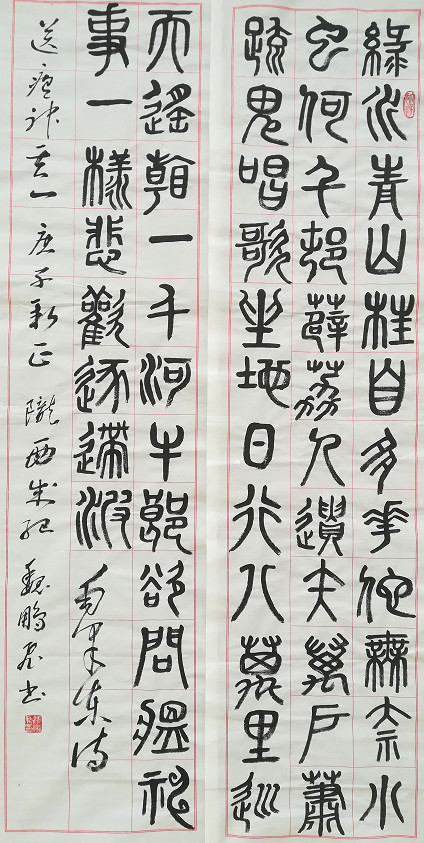 綠水青山枉自多華佗無奈小
虫何千邨薜荔人遺矢萬户蕭
疏鬼唱歌坐地日行八萬里巡
天遙看一千河牛郎欲問瘟神
事一樣悲歡逐逝波毛澤東诗
送瘟神其一庚子新正隴西成纪魏鹏书